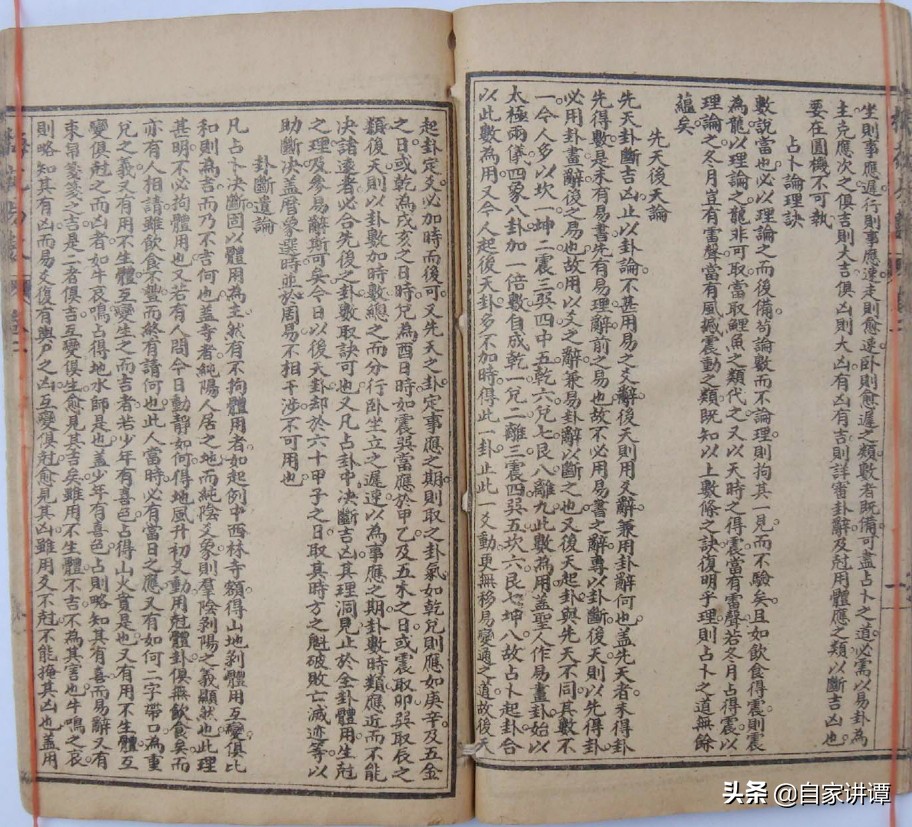 坐則事應遲行則事應速走則愈速卧則愈遲之類數者既備可盡占卜之道必需以易卦為
主克應次之俱吉則大吉俱凶則大凶有凶有吉則詳審卦辭及尅用體應之類以斷吉凶也
要在圓機不可執
占卜論理訣
數說當也必以理論之而後備苟論數而不論理則拘其一見而不驗矣且如飲食得震則震
為龍以理論之龍非可取當取鯉魚之類代之又以天時之得震當有雷聲若冬月占得震以
理論之冬月豈有雷聲當有風撼震動之類既知以上數條之訣復明乎理則占卜之道無餘
蘊矣
先天後天論
先天卦斷吉凶止以卦論不甚用易之爻辭後天則用爻辭兼用卦辭何也蓋先天者未得卦
先得數是未有易書先有易理辭前之易也故不必用易書之辭專以卦斷後天則以先得卦
必用卦畫辭後之易也故用以爻之辭兼易卦辭以斷之也又後天起卦與先天不同其數不
一今人多以坎一坤二震三巽四中五乾六兌七艮八離九此數為用蓋聖人作易畫卦始以
太極兩儀四象八卦加一倍數自成乾一兌二離三震四巽五坎六艮七坤八故占卜起卦合
以此數為用又今人起後天卦多不加時得此一卦止此一爻動更無移易變通之道故後天
起卦定爻必加時而後可又先天之卦定事應之期則取之卦氣如乾兌則應如庚辛及五金
之日或乾為戌亥之日時兌為酉日時如震巽當應於甲乙及五木之日或震取卯巽取辰之
類後天則以卦數加時數總之而分行卧坐立之遲速以為事應之期卦數時類應近而不能
決諸遠者必合先後之卦數取訣可也又凡占卦中決斷吉凶其理洞見止於全卦體用生尅
之理及參易辭斯可矣今日以後天卦却於六十甲子之日取其時方之魁破敗亡滅迹等以
助斷決蓋曆象選時並於周易不相干涉不可用也
卦斷遺論
凡占卜決斷固以體用為主然有不拘體用者如起例中西林寺額得山地剝體用互變俱比
和則為吉而乃不吉何也蓋寺者純陽人居之地而純陰爻象則羣陰剝陽之義顯然也此理
甚明不必拘體用也又若有人問今日動靜如何得地風升初爻動用尅體卦俱無飲食矣而
亦有人相請雖飲食不豐而終有請何也此人當時必有當日之應又有如何二字帶口為重
兌之義又有用不生體互變生之而吉者若少年有喜色占得山火賁是也又有用不生體互
變俱尅之而凶者如牛哀鳴占得地水師是也蓋少年有喜色占則略知其有喜而易辭又有
束帛箋箋之吉是二者俱吉互變俱生愈見其吉矣雖用不生體不吉不為其害也牛鳴之哀
則略知其有凶而易爻復有輿尸之凶互變俱尅愈見其凶雖用爻不尅不能掩其凶也蓋用
头条 @自家讲谭